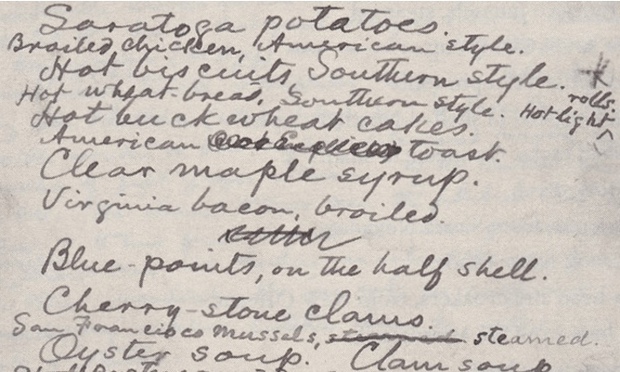 Saratoga potatoes.
Broiled chicken, American style.
Hot biscuits Southern style.
Hot wheat-bread, Southern style. Hot light rolls.
Hot buckwheat cakes.
American toast.
Clear maple syrup.
Virginia bacon, broiled.
Blue-points, on the half shell.
Cherry-stone clams.
San Francisco mussels, steamed steamed.
Oyster soup. Clam soup